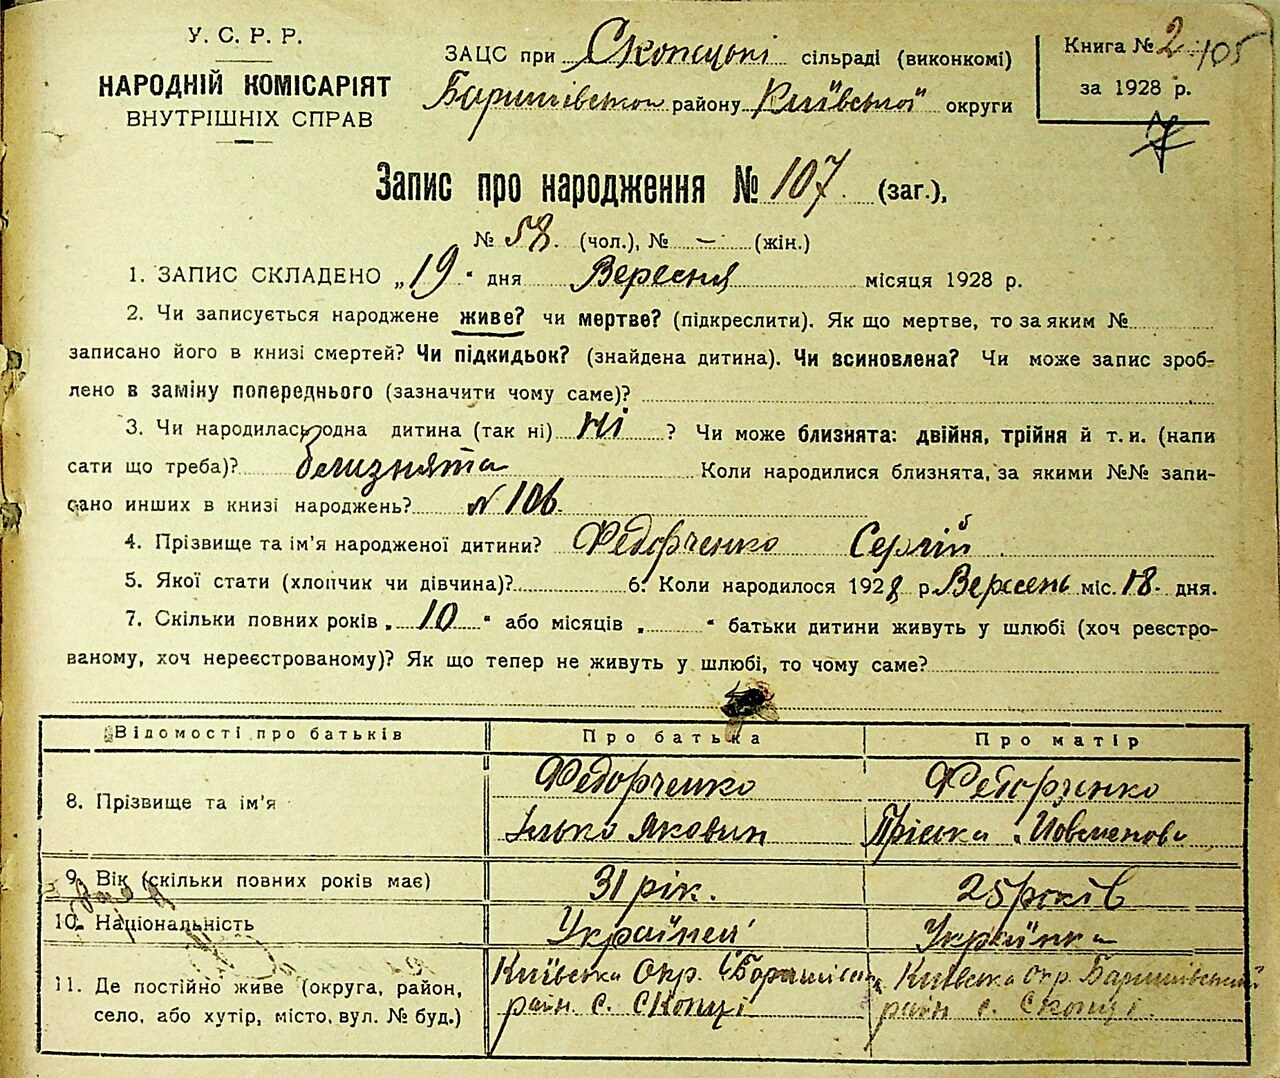 У. С. Р. Р.
НАРОДНІЙ КОМІСАРІЯТ
ВНУТРІШНІХ СПРАВ
ЗАЦС при Скопцькі сільраді (виконкомі)
Баришівської району Київської округи
Книга № 2 105
за 1928 р.
7
Запис про народження № 107 (заг.),
№ 58. (чол.), № – (жін.)
1. ЗАПИС СКЛАДЕНО „19“ дня Вересня місяця 1928 р.
2. Чи записується народжене живе? чи мертве? (підкреслити). Як що мертве, то за яким №
записано його в книзі смертей? Чи підкидьок? (знайдена дитина). Чи всиновлена? Чи може запис зроб-
лено в заміну попереднього (зазначити чому саме)?
3. Чи народилась одна дитина (так ні) ні ? Чи може близнята: двійня, трійня й т. и. (напи
сати що треба)? близнята Коли народилися близнята, за якими №№ запи-
сано инших в книзі народжень? № 106.
4. Прізвище та ім'я народженої дитини? Федорченко Сергій
5. Якої стати (хлопчик чи дівчина)? 6. Коли народилося 1928 р. Вересень міс. 18. дня.
7. Скільки повних років „ 10 “ або місяців „ “ батьки дитини живуть у шлюбі (хоч реєстро-
ваному, хоч нереєстрованому)? Як що тепер не живуть у шлюбі, то чому саме?
Відомості про батьків Про батька Про матір
8. Прізвище та ім'я Федорченко Федорченко
Ілько Якович Пріська
9. Вік (скільки повних років має) 31 рік. 25 років
10. Національність Українець Українка
11. Де постійно живе (округа, район, Київська Окр. Баришівськ Київська Окр. Баришівський
село, або хутір, місто, вул. № буд.) райн с. Скопці райн с. Скопці.